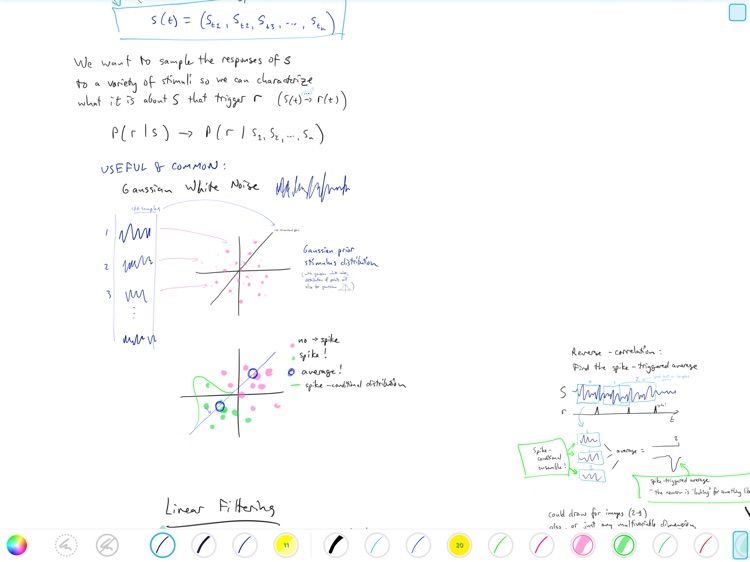 S(t) = (St1, St2, St3, ..., Stn)
We want to sample the responses of S
to a variety of stimuli so we can characterize
what it is about S that trigger r (S(t) → r(t))
P(r|s) → P(r|S1, S2, ..., Sn)
USEFUL & COMMON:
Gaussian White Noise
100 samples
1
2
3
Gaussian prior
stimulus distribution
(with gaussian white noise,
distribution of points will
also be gaussian
no → spike
spike!
average!
spike-conditional distribution
Linear Filtering
Reverse-correlation:
Find the spike-triggered average
S
r
t
Spike-
conditional
ensemble!
average =
spike-triggered average
"the neuron is "looking" for something like
could draw for images (2-d)
also, or just any multivariable dimension
11
20